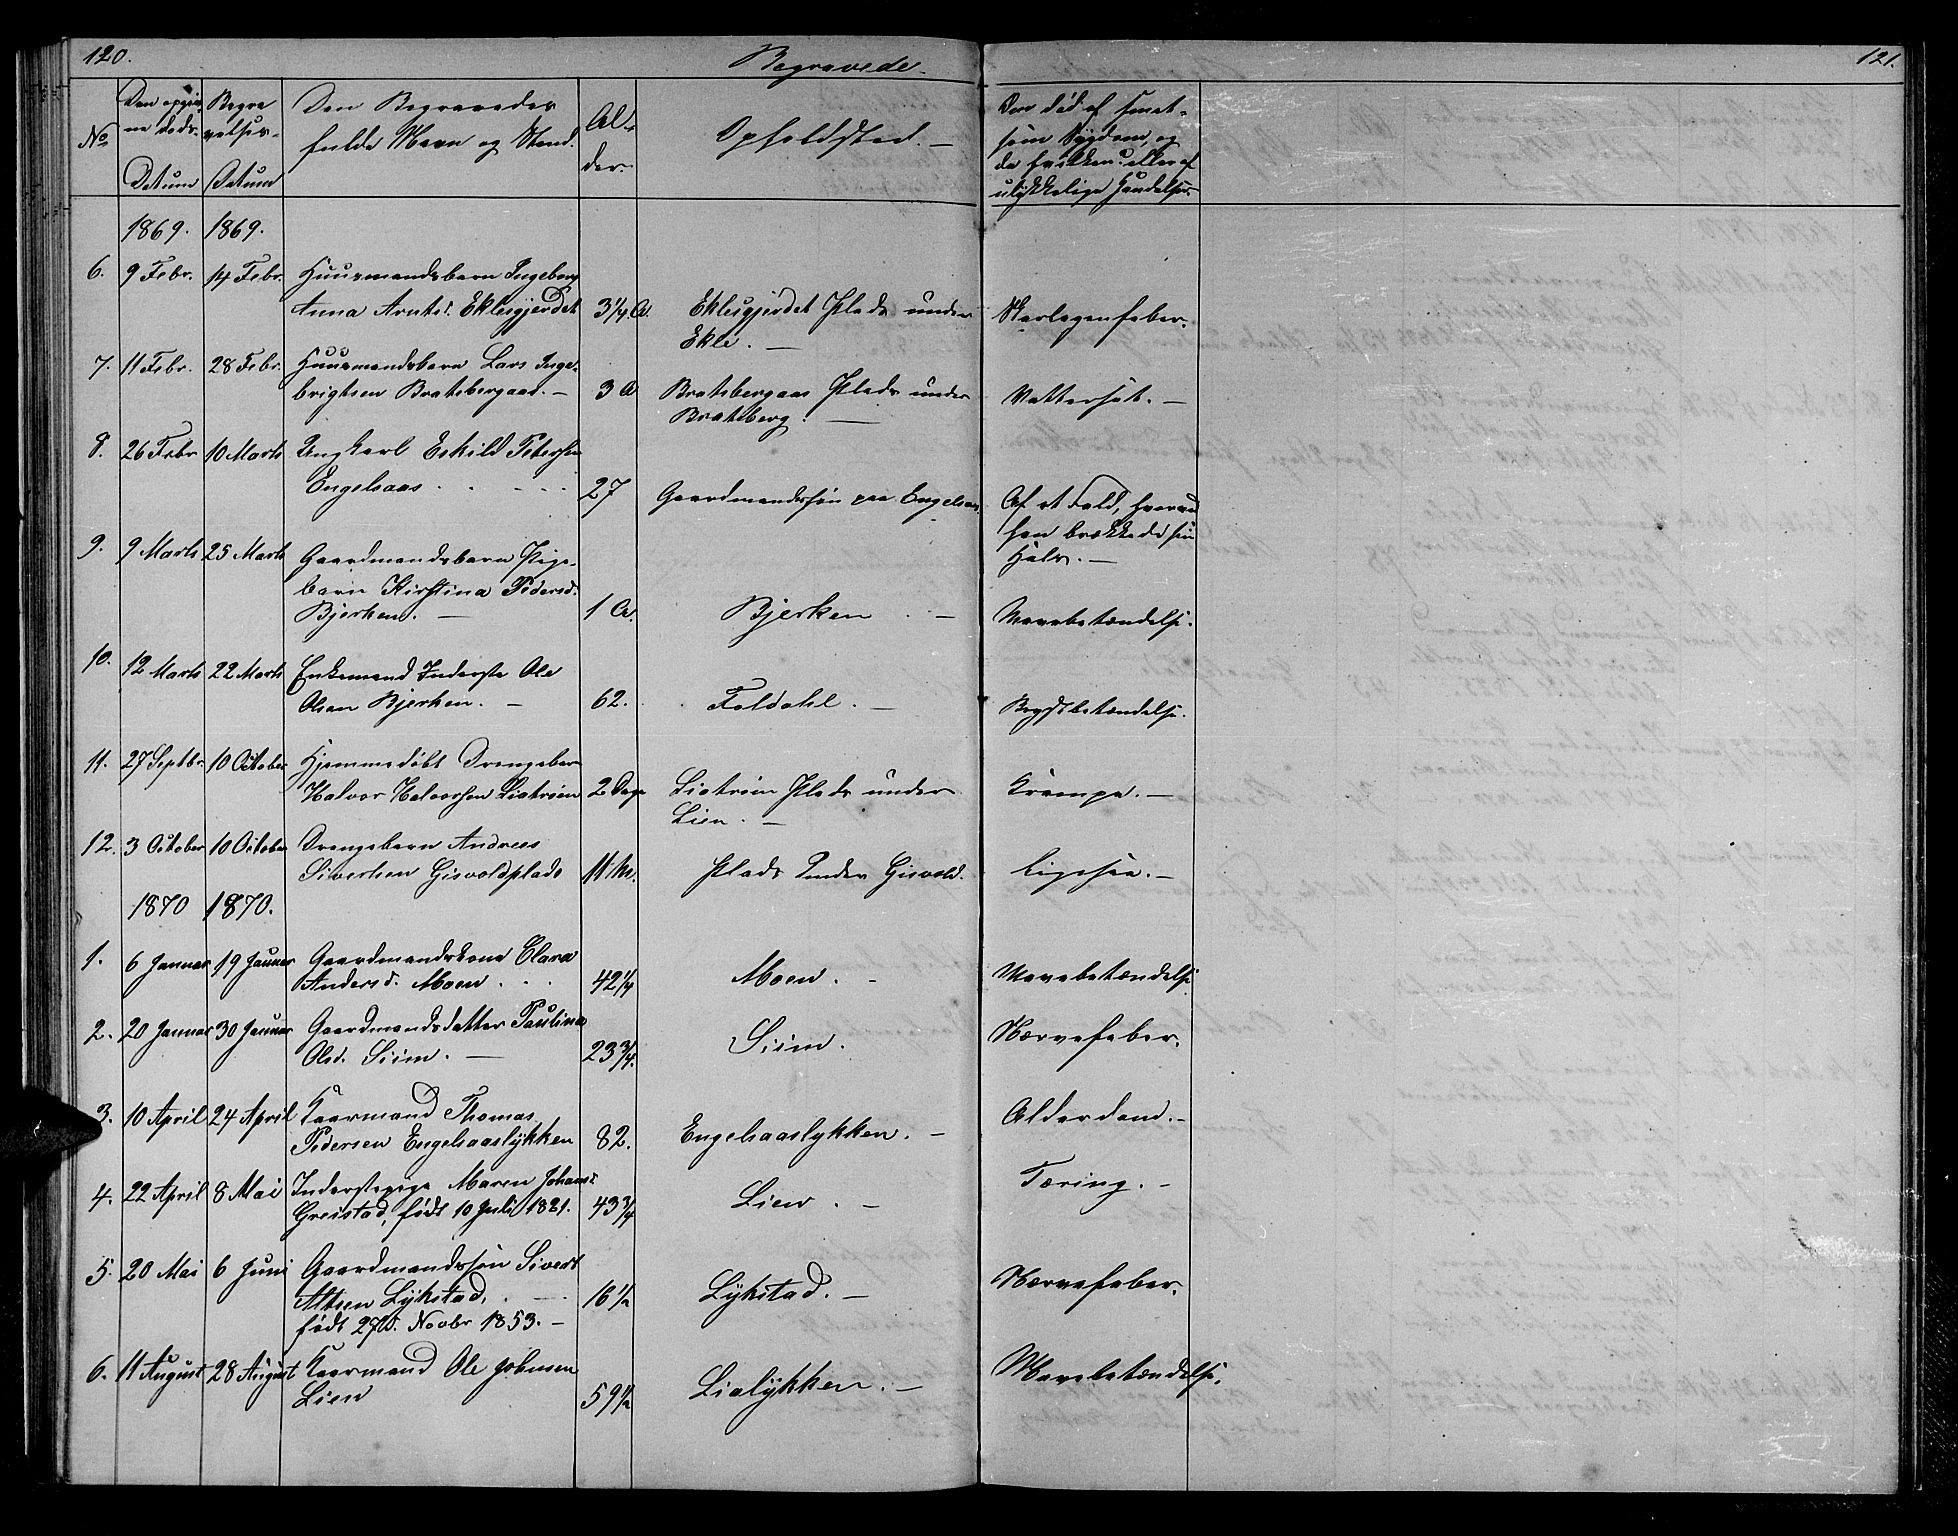 120.
Begravede.
121.
No
Den opgiv-
ne døds-
Datum
Begra
velses-
Datum
Den Begravedes
fulde Navn og Stand.
Al-
der.
Opholdsted.
Om død af smit-
som Sygdom, og
da hvilken? eller af
ulykkelige Hændelser.
1869. 1869.
6. 9 Febr. 14 Febr. Huusmandsbarn Ingeborg
Anna Arntsd. Eklesgjerdet 3 1/4. A. Eklesgjerdet Plads under Skarlagenfeber.
Ekle.
7. 11 Febr. 28 Febr. Huusmandsbarn Lars Inge-
brigtsen Bratsbergaas. 3 A Bratsbergaas Plads under Vattersot.
Bratsberg.
8. 26 Febr 10 Marts Ungkarl Eskild Petersen
Engelsaas 27 Gaardmandssøn paa Engelsaas. Af et Fald, hvorved
han brækkede sin
Hals.
9. 9 Marts 25 Marts Gaardmandsbarn Pige-
barn Kirstina Pedersd.
Bjerken. 1 A. Bjerken Mavebetændelse.
10. 12 Marts 22 Marts Enkemand Inderste Ole
Olsen Bjerken. 62. Foldahl. Brystbetændelse.
11. 27 Septbr. 10 October Hjemmedøbt Drengebarn
Halvor Halvorsen Liatrøen 2 Dage Liatrøen Plads under Krampe.
Lien.
12. 3 October 10 October Drengebarn Andreas
Sivertsen Gisvoldplads 11 M. Plads Under Gisvold. Ligesaa.
1870 1870.
1. 6 Januar 19 Januar Gaardmandskone Clara
Andersd. Moen 42 1/4 Moen. Mavebetændelse
2. 20 Januar 30 Januar Gaardmandsdatter Paulina
Olsd. Siim. 23 3/4. Siim. Nervefeber.
3. 10 April 24 April Kaarmand Thomas
Pedersen Engelsaaslykken 82. Engelsaaslykken. Alderdom.
4. 22 April 8 Mai Inderstepige Maren Johans
Greistad, født 10 Juli 1821. 43 3/4 Lien. Tæring.
5. 20 Mai 6 Juni Gaardmandssøn Sivert
Altsen Lykstad, 16 1/2 Lykstad. Nervefeber.
født 27d. Novbr 1853.
6. 11 August 28 August Kaarmand Ole Johnsen
Lien 59 1/2 Lialykken. Mavebetændelse.